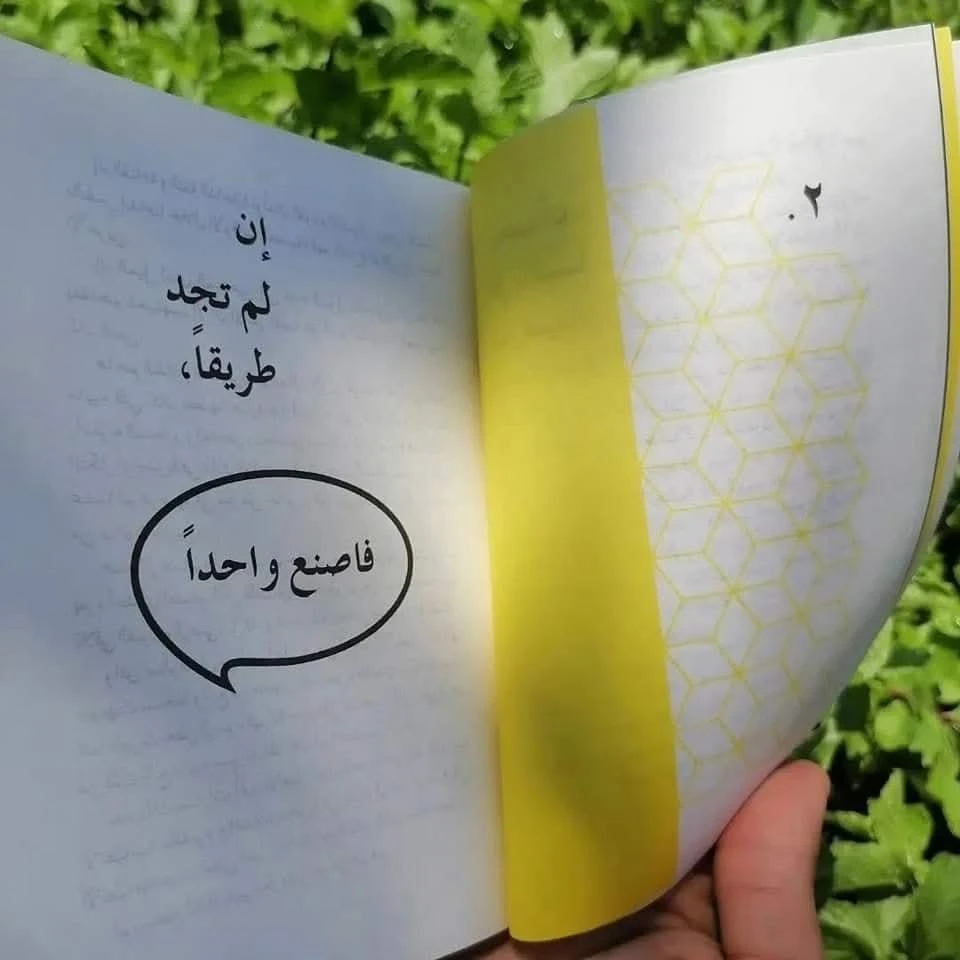 إن
لم تجد
طريقاً،
فاصنع واحداً
٢.